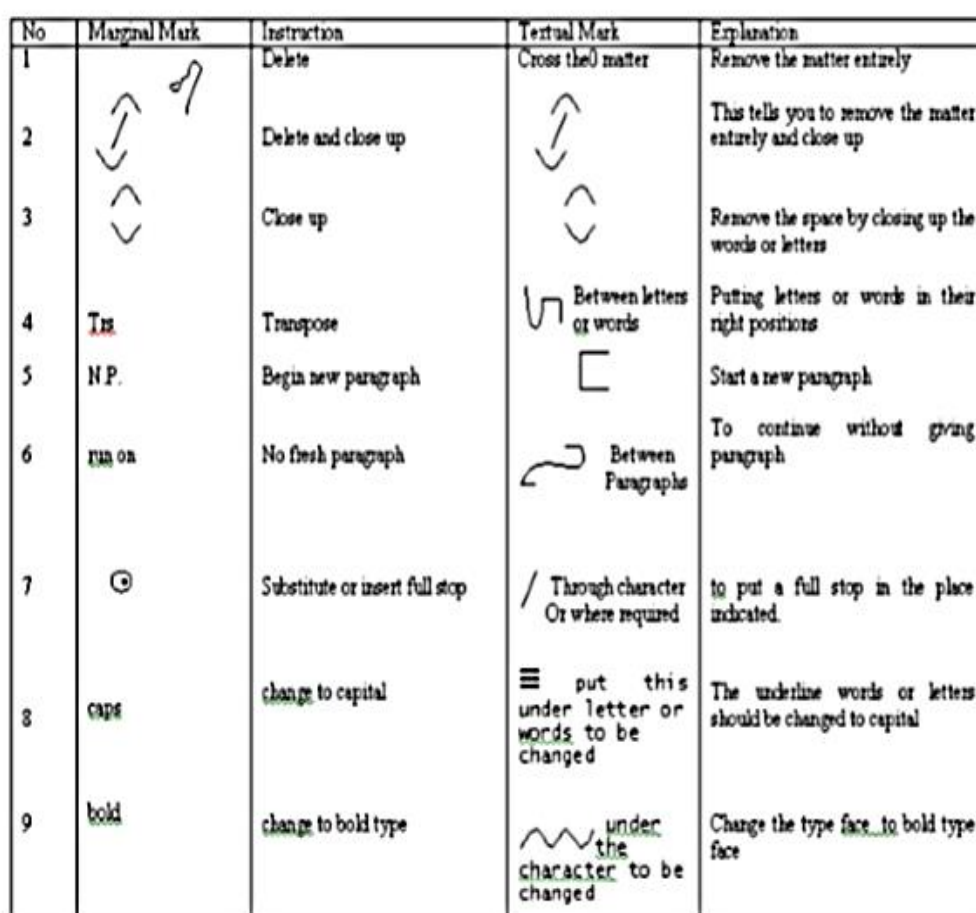 No Marginal Mark Instruction Textual Mark Explanation
1 Delete Cross the0 matter Remove the matter entirely
2 Delete and close up This tells you to remove the matter
entirely and close up
3 Close up Remove the space by closing up the
words or letters
4 Trs Transpose Between letters
or words Putting letters or words in their
right positions
5 N.P. Begin new paragraph Start a new paragraph
6 run on No fresh paragraph Between
Paragraphs To continue without giving
paragraph
7 Substitute or insert full stop / Through character
Or where required to put a full stop in the place
indicated.
8 caps change to capital ≡ put this
under letter or
words to be
changed The underline words or letters
should be changed to capital
9 bold change to bold type under
the
character to be
changed Change the type face to bold type
face